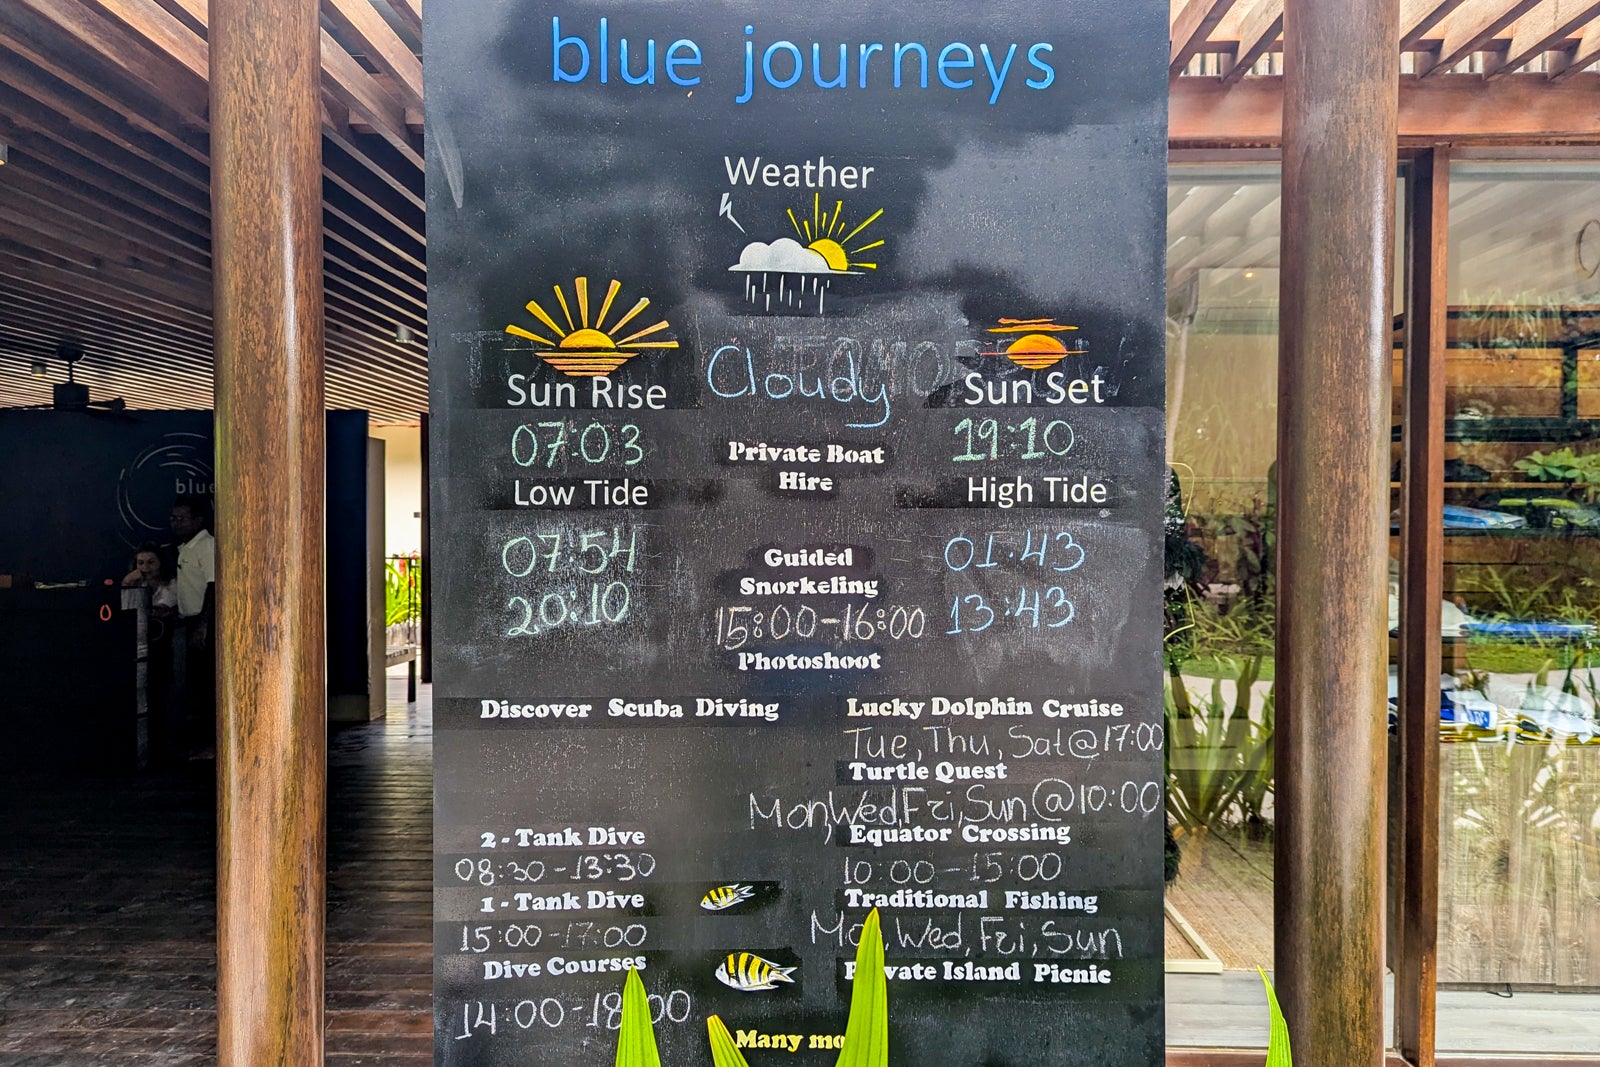 blue journeys
Weather
Cloudy
Sun Rise
07:03
Low Tide
07:54
20:10
Sun Set
19:10
High Tide
01:43
13:43
Private Boat
Hire
Guided
Snorkeling
15:00-16:00
Photoshoot
Discover Scuba Diving
2-Tank Dive
08:30-13:30
1-Tank Dive
15:00-17:00
Dive Courses
14:00-18:00
Lucky Dolphin Cruise
Tue, Thu, Sat@17:00
Turtle Quest
Mon, Wed, Fri, Sun@10:00
Equator Crossing
10:00-15:00
Traditional Fishing
Mon, Wed, Fri, Sun
Private Island Picnic
Many
blue